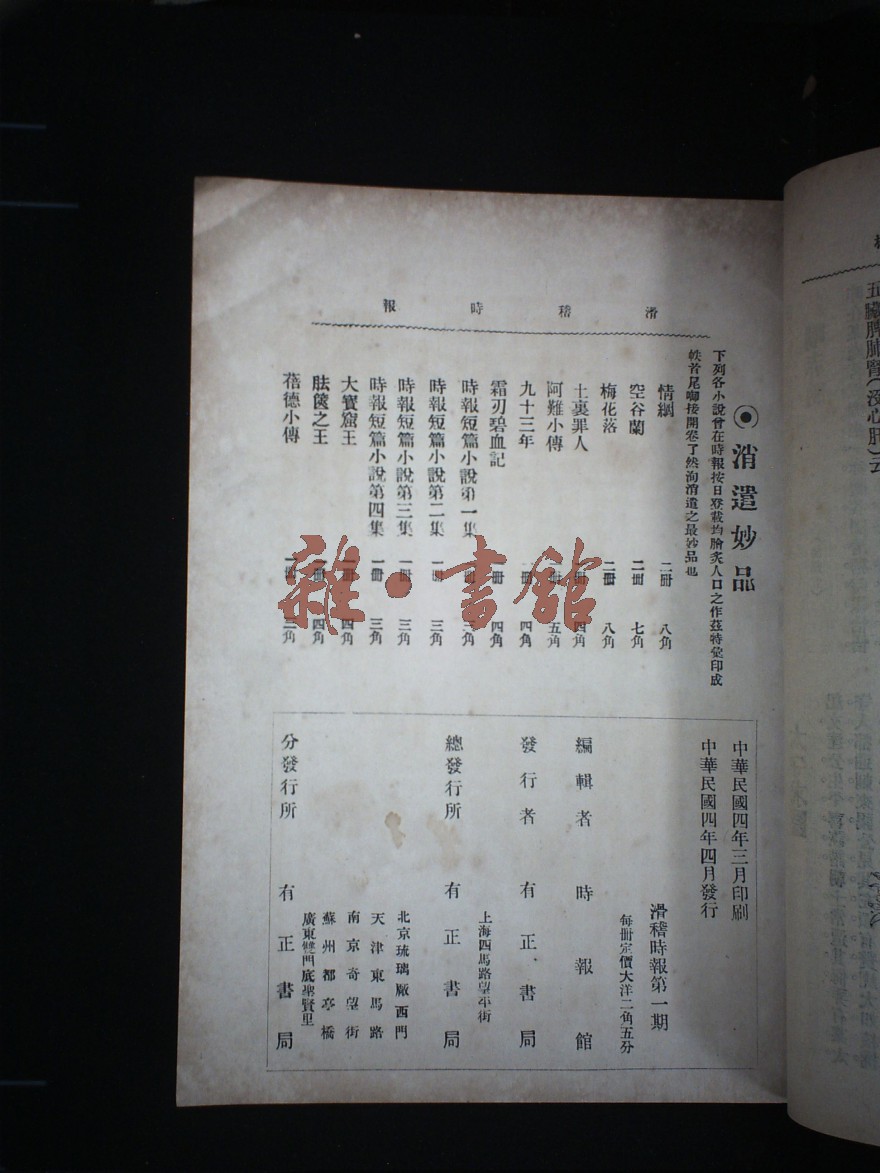 滑稽時報
◉消遣妙品
下列各小說曾在時報按日登載均膾炙人口之作茲特彙印成
帙首尾啣接開卷了然洵消遣之最妙品也
情網 二冊 八角
空谷蘭 二冊 七角
梅花落 二冊 八角
土裏罪人 冊 四角
阿難小傳 冊 五角
九十三年 冊 四角
霜刃碧血記 一冊 四角
時報短篇小說第一集 冊 三角
時報短篇小說第二集 一冊 三角
時報短篇小說第三集 一冊 三角
時報短篇小說第四集 一冊 三角
大寶窟王 冊 四角
胠篋之王 冊 四角
蓓德小傳 一冊 三角
中華民國四年三月印刷
中華民國四年四月發行
滑稽時報第一期
每冊定價大洋二角五分
編輯者 時報館
發行者 有正書局
上海四馬路望平街
總發行所 有正書局
北京琉璃厰西門
天津東馬路
南京奇望街
蘇州都亭橋
廣東雙門底聖賢里
分發行所 有正書局
雜·書館
五臟脾肺腎(沒心肝)云